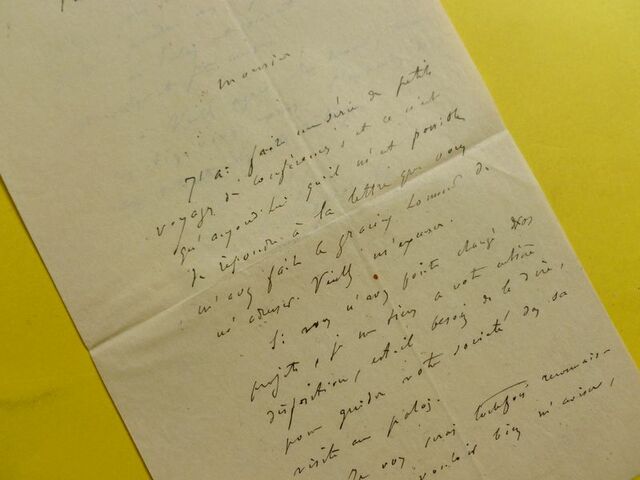 Monsieur
J'ai fait une série de petits
voyages de conférences et ce n'est
qu'aujourd'hui qu'il m'est possible
de répondre à la lettre que vous
m'avez fait le gracieux honneur de
m'adresser. Veuillez m'excuser.
Si vous n'avez point changé vos
projets, je me tiens à votre entière
disposition, est-il besoin de le dire,
pour guider votre société dans sa
visite au palais.
Je vous serais toutefois reconnais-
vouloir bien m'aviser,